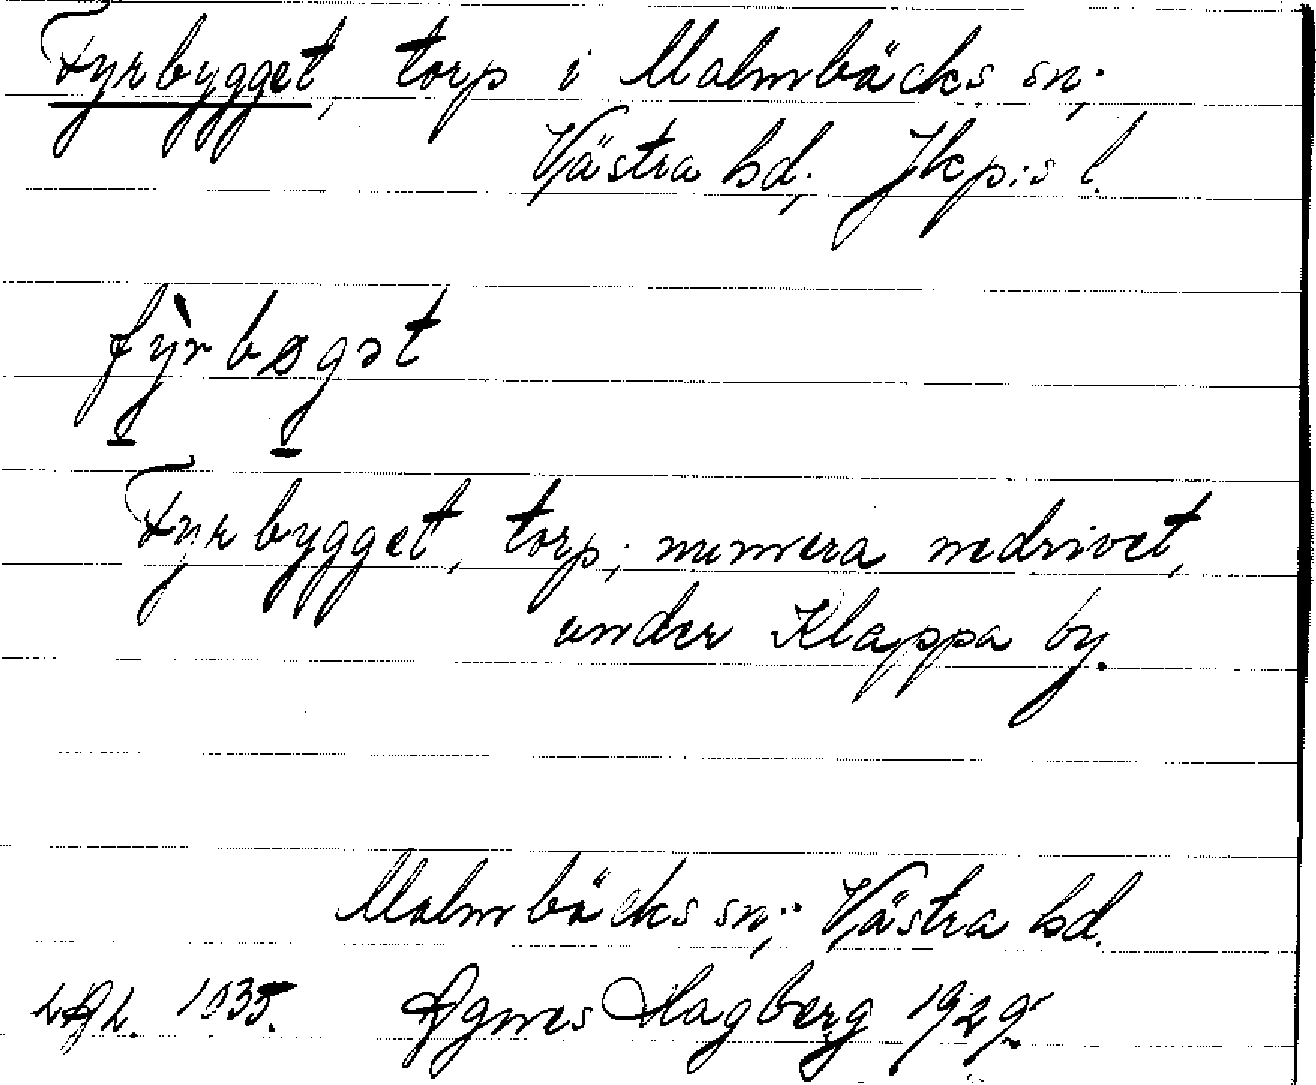 Fyrbygget, torp i Malmbäcks sn;
Västra hd; Jkp:s l.
fỳrbøgət
Fyrbygget, torp; numera nedrivet,
under Klappa by.
Malmbäcks sn; Västra hd.
1935. Agnes Hagberg 1929.